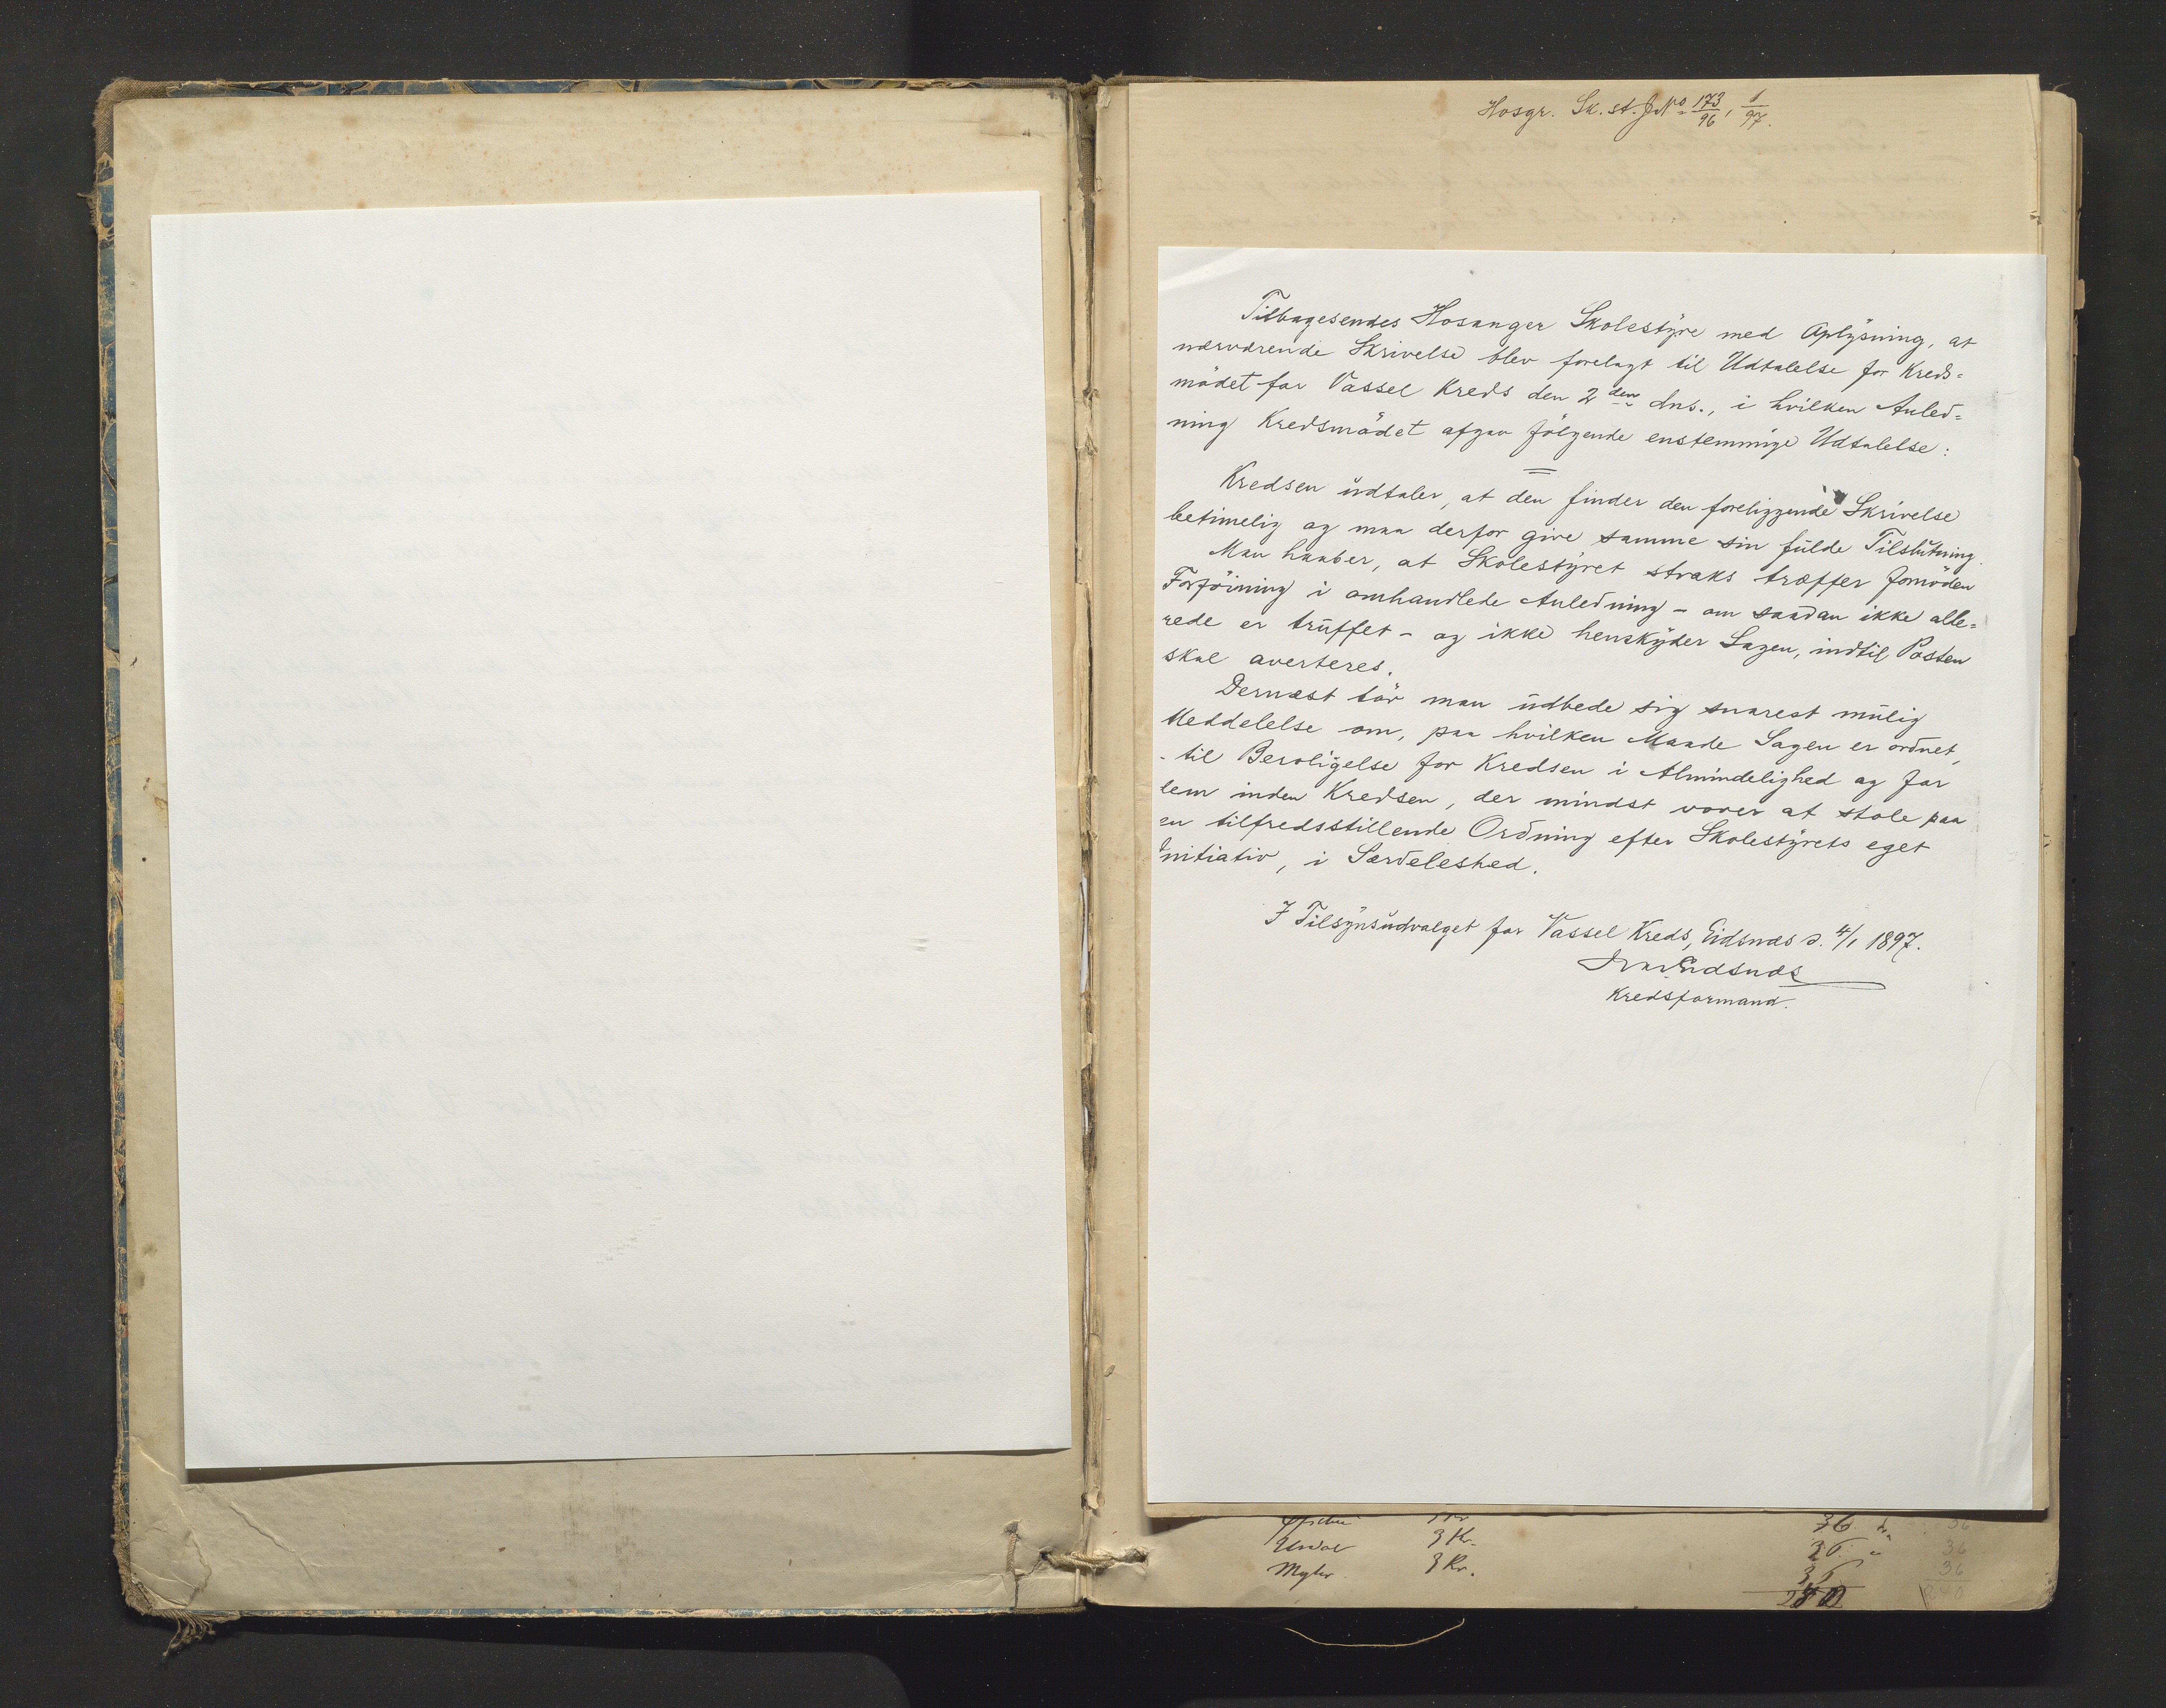 Hosgr. Sk. st. J. No 173/96, 1/97.
Tilbagesendes Hosanger Skolestyre med Oplysning, at
nærværende Skrivelse blev forelagt til Udtalelse for Kreds=
mødet for Vassel Kreds den 2den dns., i hvilken Anled=
ning Kredsmødet afgav følgende enstemmige Udtalelse:
Kredsen udtaler, at den finder den foreliggende Skrivelse
betimelig og maa derfor give samme sin fulde Tilslutning.
Man haaber, at Skolestyret straks træffer fornøden
Forføining i omhandlede Anledning - om saadan ikke alle=
rede er truffet - og ikke henskyder Sagen, indtil Posten
skal averteres.
Dernæst tør man udbede sig snarest mulig
Meddelelse om, paa hvilken Maade Sagen er ordnet,
- til Beroligelse for Kredsen i Almindelighed og for
dem inden Kredsen, der mindst vover at stole paa
en tilfredsstillende Ordning efter Skolestyrets eget
Initiativ, i Særdeleshed.
I Tilsynsudvalget for Vassel Kreds, Eidsnæs d. 4/1 1897.
Ivar Eidsnæs
Kredsformand.
36 36
3 Kr. 36
3 Kr. 36 36